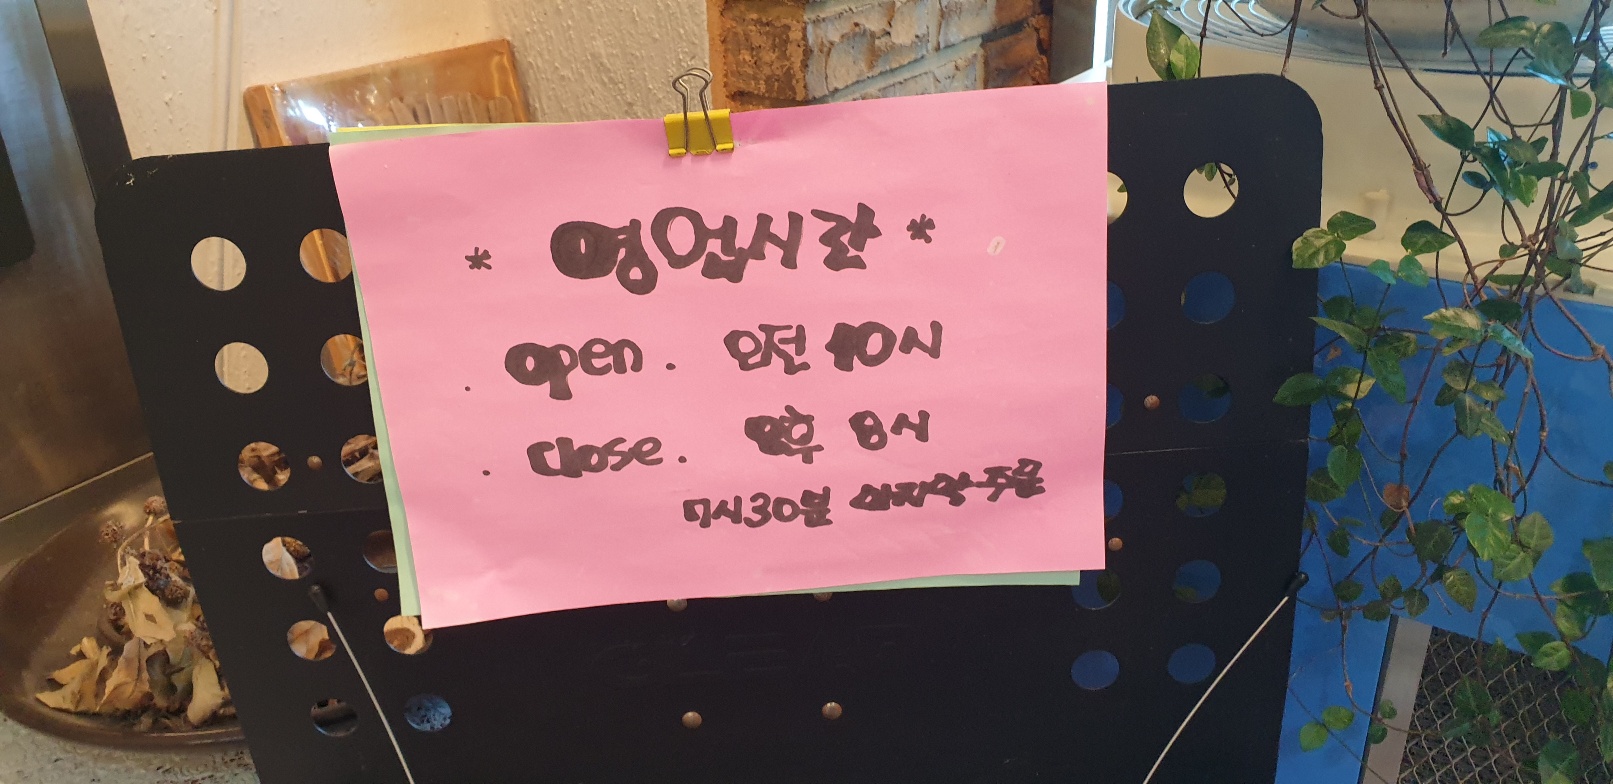 * 영업시간 *
. open . 오전 10시
. close . 오후 8시
7시30분 마지막 주문